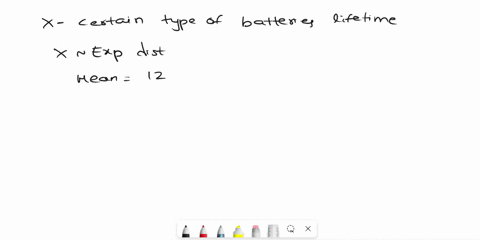 X- certain type of batteries lifetime
X ~ Exp dist
Mean = 12